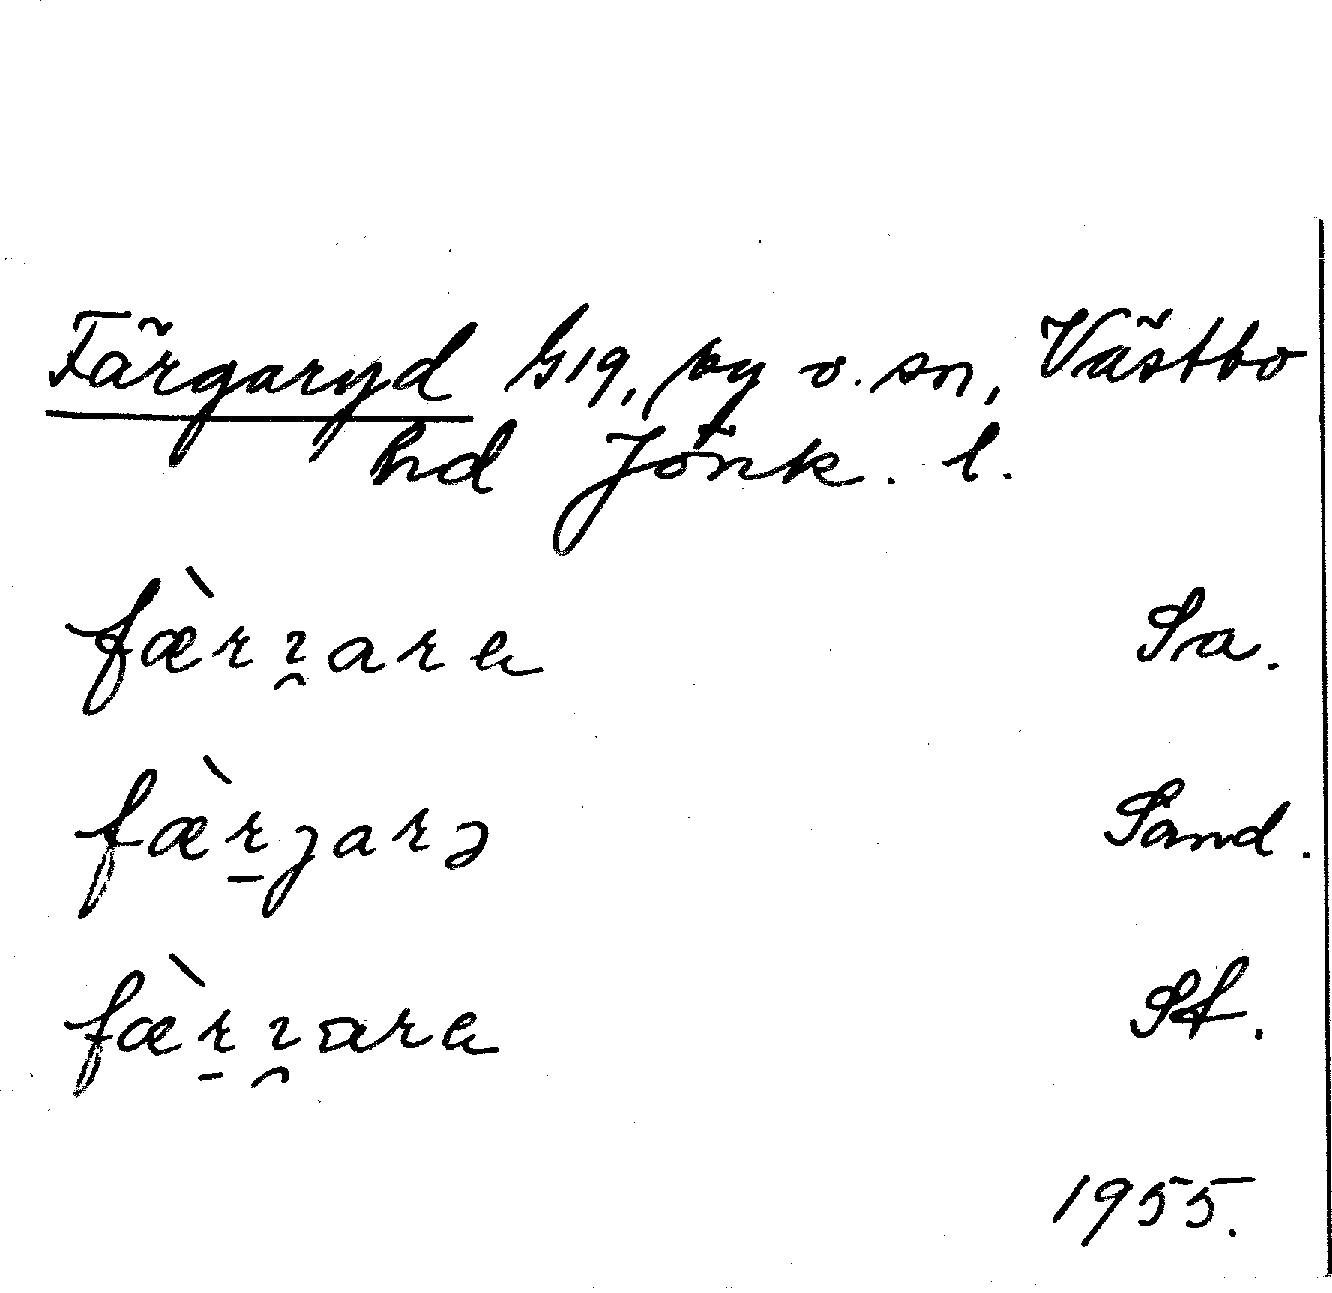 Färgaryd G19, by o. sn, Västbo
hd Jönk. l.
fæ̀rɿ̯ara Sa.
fæ̀r̠jarə Sand.
fæ̀r̠ɿ̯ara St.
1955.